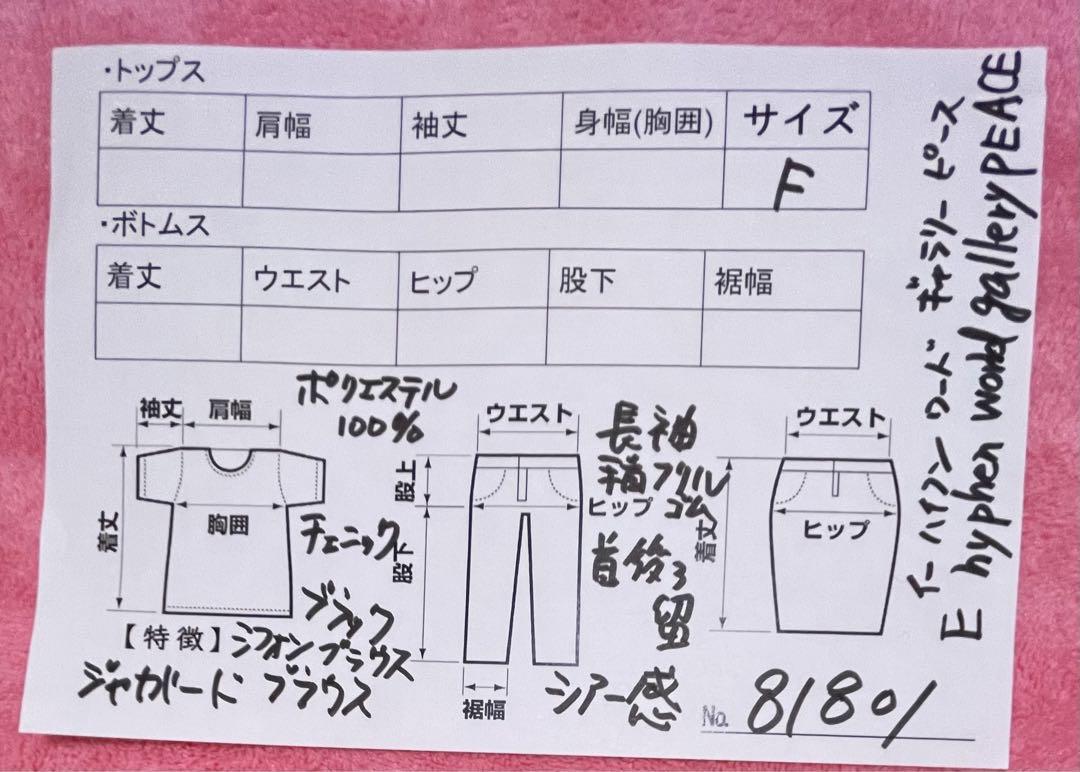 ・トップス
着丈 肩幅 袖丈 身幅(胸囲) サイズ
F
・ボトムス
着丈 ウエスト ヒップ 股下 裾幅
ポリエステル
100%
袖丈 肩幅
着丈
胸囲
チュニック
ブラック
【特徴】シフォンブラウス
ジャガードブラウス
ウエスト
股上
股下
裾幅
長袖
フリル
ヒップ ゴム
首後ろ
留
シアー感
ウエスト
着丈
ヒップ
No. 81801
イーハイフン ワールド ギャラリー ピース
E hyphen world gallery PEACE